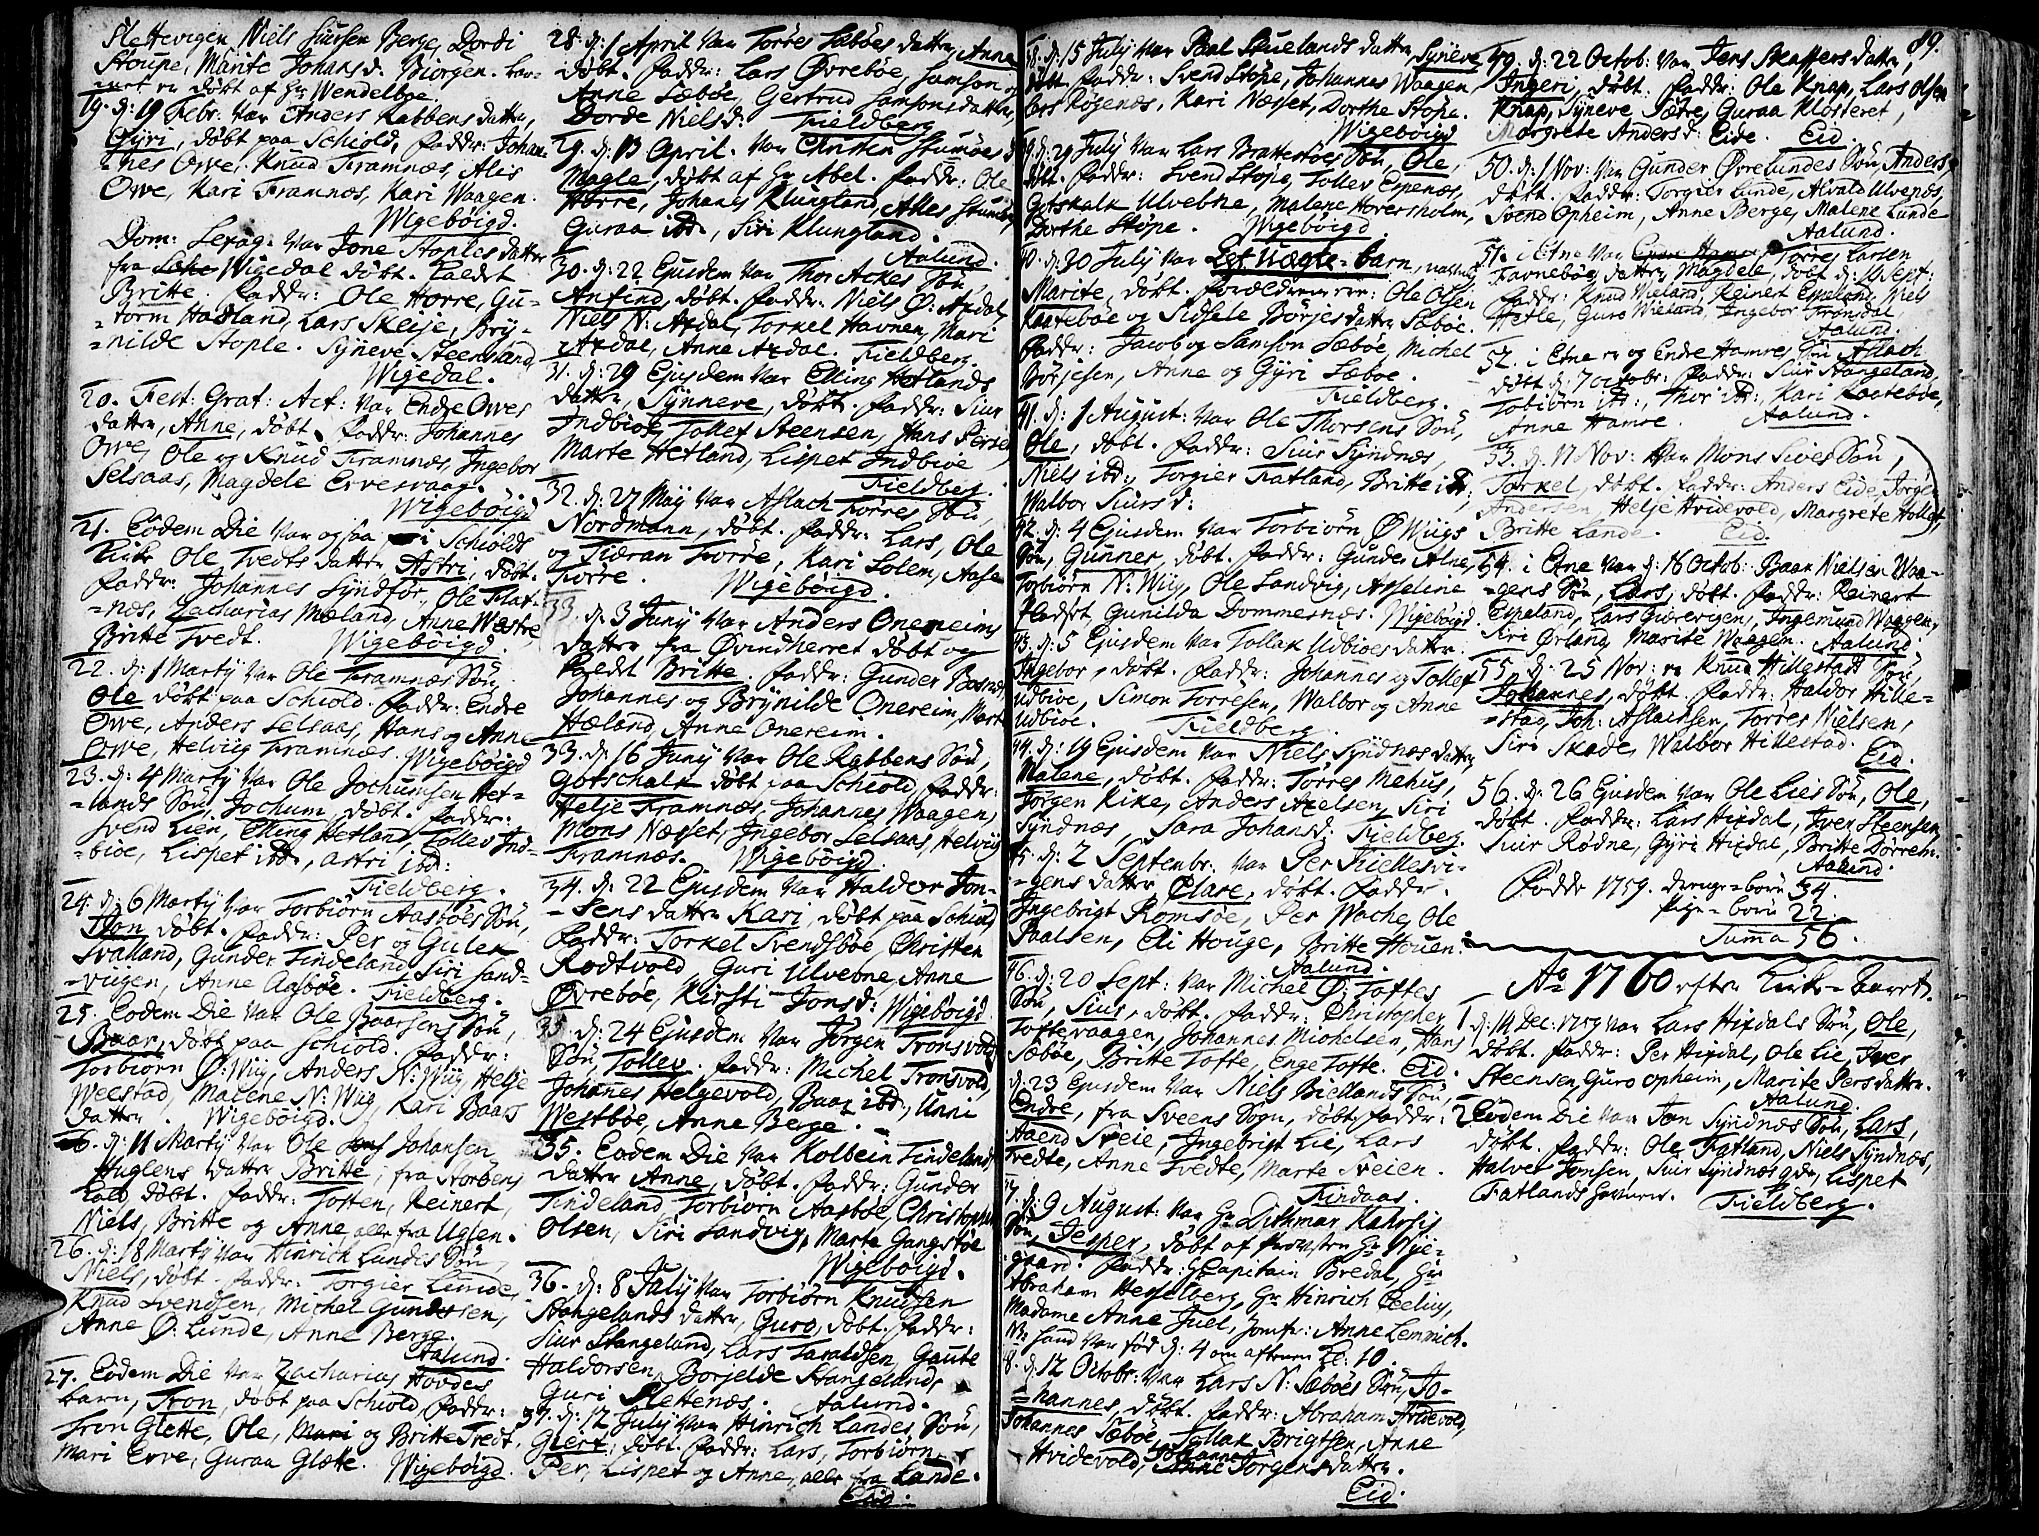 Slettevigen Niels Siursen Berge, Dordi
Stoupe, Marite Johansd: Biorgen. bar-
net er døbt af Hr Wendelboe.
19. d: 19 Febr: var Anders Rabbens datter,
Gyri, døbt paa Schiold, Faddr: Johan-
nes Owe, Knud Framnæs, Alis
Owe, Kari Framnæs, Kari Waagen.
Wigebøigd.
Dom: Sexag: var Jone Stoples datter
fra Wigedal døbt. kaldt
Britte. Faddr: Ole Horre, Gu-
torm Hadland, Lars Skeije, Bry-
nilde Stople. Syneve Steensland
Wigedal.
20. Fest: Grat: Act: var Endre Owes
datter, Anne, døbt. Faddr: Johannes
Owe, Ole og Knud Framnæs, Ingebor
Selsaas, Magdele Ervesvaag.
Wigebøigd
21. Eodem Die var ogsaa i Schiolds
Kirke Ole Tvedts datter Astri, døbt.
Faddr: Johannes Syndfor, Ole Flat-
næs, Zacharias Mæland, Anne Westre
Britte Tvedt. Wigebøigd.
22. d: 1 Marty var Ole Framnæs Søn,
Ole døbt paa Schiold. Faddr: Endre
Owe, Anders Selsaas, Hans og Anne
Owe, Helvig Framnæs. Wigebøigd
23. d: 4 Marty var Ole Jochumsen Het-
lands Søn, Jochum, døbt. Faddr:
Svend Lien, Elling Hetland, Tollev Ind-
bioe, Lispet ibd:, Astri ibd:
Fieldberg.
24. d: 6 Marty var Torbiørn Aasbøes Søn,
Jon døbt. Faddr: Per og Gulek
Svalland, Gunder Tindeland, Siri Sand-
viigen, Anne Aasbøe. Fieldberg.
25. Eodem Die var Ole Baarsens Søn,
Baar, døbt paa Schiold. Faddr:
Torbiørn Ø: Wiig, Anders N: Wiig, Helje
Weestad, Malene N: Wiig, Kari Baars
datter. Wigebøigd.
d: 11 Marty var Ole Johansen
Huglens datter Britte, fra Storøens
døbt. Faddr: Tosten, Reinert,
Niels, Britte og Anne, alle fra Uglen.
26. d: 18 Marty var Hinrich Lundes Søn,
Niels, døbt. Faddr: Torgier Lunde,
Knud Svendsen, Michel Gundersen,
Anne Ø: Lunde, Anne Berge.
Aalund.
27. Eodem Die var Zacharias Hovdes
barn, Tron, døbt paa Schiold, Faddr:
Tron Glette, Ole, Mari og Britte Tvedt,
Mari Erve, Guraa Glette. Wigebøigd.
28. d: 1 April var Torres Sæbøes datter, Anne
døbt. Faddr: Lars Øvrebøe, Samson og
Anne Sæbøe, Gertrud Samsonsdatter,
Dorde Nielsd: Fieldberg
29. d: 13 April. var Christen Stumøes
Magle, døbt af Hr Abel. Faddr: Ole
Horre, Johanes Klungland, Alles Stumøe,
Guraa ibd:, Siri Klungland.
Aalund.
30. d: 22 Ejusdem var Thor Ackes Søn,
Anfind, døbt. Faddr: Niels Ø: Axdal,
Niels N: Axdal, Torkel Havnen, Mari
Axdal, Anne Axdal. Fieldberg.
31. d: 29 Ejusdem var Elling Hetlands
datter, Synneve, døbt. Faddr: Siur
Indbioe, Tollef Steensen, Hans Persen,
Marte Hetland, Lispet Indbioe
Fieldberg.
32. d: 27 Maij var Aslach Torres Søn,
Nordmann, døbt. Faddr: Lars, Ole
og Tiæran Tvørre, Kari Solem, Aase
Tvørre. Wigebøigd.
33. d: 3 Junij var Anders Onereims
datter fra Øvindherret døbt og
kaldt Britte. Faddr: Gunder
Johannes og Brynilde Onereim, Marte
Hæland, Anne Onereim.
33. d: 16 Junij var Ole Rabbens Søn,
Gotschalk døbt paa Schiold, Faddr:
Helje Framnæs, Johannes Waagen,
Mons Næsset, Ingebor Selsaas, Helvig
Framnæs. Wigebøigd.
34. d: 22 Ejusdem var Haldor Jon-
sens datter Kari, døbt paa Schiold
Faddr: Torkel Svendsbøe, Christen
Rødtvold Guri Ulvebne, Anne
Øvrebøe, Kirsti Jonsd: Wigebøigd
35. d: 24 Ejusdem var Jørgen Tronsvolds
Søn, Tollev. Faddr: Michel Tronsvold,
Johanes Helgevold, Baar ibd:, Unni
Westbøe, Anne Berge.
35. Eodem Die var Kolbein Tindelands
datter Anne, døbt. Faddr: Gunder
Tindeland, Torbiørn Aasbøe, Christopher
Olsen, Siri Sandvig, Marte Gangstøe
Wigebøigd.
36. d: 8 July var Torbiørn Knudsen
Stangelands datter, Guro, døbt. Faddr:
Siur Stangeland, Lars Taraldsen, Gaute
Haldorsen, Borjelde Stangelands
Guri Slettenæs. Aalund.
37. d: 12 July var Hinrich Landes Søn,
Giert, døbt. Faddr: Lars, Torbiørn,
Per, Lispet og Anne, alle fra Lande.
Eid.
89.
38. d: 15 July var Paal Skuelands datter, Syneve
døbt. Faddr: Svend Støpe, Johannes Waagen
Lars Røgenæs, Kari Næsset, Dorthe Støpe.
Wigebøigd
39. d: 29 July var Lars Brattestøes Søn, Ole,
døbt. Faddr: Svend Støpe, Tollev Espenæs,
Gotskalk Ulvebne, Malene Hoversholm,
Dorthe Støpe. Wigebøigd.
40. d: 30 July var Eet Uægte-barn,
Marite, døbt. Forældrene ere: Ole Olsen
Kaatebøe og Sidsele Børjes datter Sæbøe.
Faddr: Jacob og Samson Sæbøe, Michel
Børjesen, Anne og Gyri Sæbøe.
Fieldberg.
41. d: 1 August: var Ole Thorsens Søn,
Ole, døbt. Faddr: Siur Syndnæs,
Niels ibd:, Torgier Fatland, Britte ibd:,
Walbor Siursd:
42. d: 4 Ejusdem var Torbiørn Ø Wiigs
Søn, Gunner, døbt. Faddr: Gunder Alne,
Torbiørn N: Wiig, Ole Sandvig, Asseline
Fladset, Gunilda Dommersnæs. Wigebøigd
43. d: 5 Ejusdem var Tollak Udbioes datter
Ingebor, døbt. Faddr: Johannes og Tollef
Udbioe, Simon Torresen, Walbor og Anne
Udbioe. Fieldberg.
44. d: 19 Ejusdem var Niels Syndnæs datter,
Malene, døbt. Faddr: Torres Mehus,
Jørgen Kike, Anders Axelsen, Siri
Syndnæs, Sara Johansd: Fieldberg.
45. d: 2 Septembr: var Per Kiellesvi-
gens datter Clare, døbt. Faddr:
Ingebrigt Romsøe, Per Wache, Ole
Paalsen, Eli Houge, Britte Houen.
Aalund.
46. d: 20 Sept: var Michel Ø: Toftes
Søn, Siur, døbt. Faddr: Christopher
Toftevaagen, Johannes Michelsen, Hans
Sæbøe, Britte Tofte, Enge Tofte. Eid.
d: 23 Ejusdem var Niels Bielands Søn,
Endre, fra Sveens Sogn, døbt, Faddr:
Aaend Sveie, Ingebrigt Lie, Lars
Tvedte, Anne Tvedte, Marte Sveien.
Findaas.
47. d: 9 August: var Hr Dithmar Kahrsis
Søn, Jesper, døbt af Provsten Hr Nye-
gaard. Faddr: Hr Capitain Bredal, Hr
Abraham Hesselberg, Hr Hinrich Ceelius,
Madame Anne Juel, Jomfr: Anne Lemmich.
NB: hand var fød d: 4 om aftenen kl: 10.
48. d: 12 Octobr: var Lars N: Sæbøes Søn, Jo-
hannes, døbt. Faddr: Abraham Hvidevold,
Johannes Sæbøe, Tollak Brigtsen, Anne
Hvidevold, Johanne Jørgensdatter.
Eid.
49. d: 22 Octob: var Jens Skaffers datter,
Ingeri, døbt. Faddr: Ole Knap, Lars Olsen
Knap, Syneve Sætre, Guraa Klosteret,
Margrete Andersd: Eide. Eid
50. d: 1 Nov: var Gunder Øvrelundes Søn Anders,
døbt. Faddr: Torgier Lunde, Alvald Ulvenæs,
Svend Opheim, Anne Berge, Malene Lunde
Aalund.
51. i Etne var Torres Larsen
Favnebøes datter, Magdele, døbt d: Sept:
Faddr: Knud Wieland, Reinert Espeland, Niels
Hetle, Guro Wieland, Ingebor Frønsdal
Aalund.
52. i Etne er og Endre Hamres Søn Aslach
døbt d: 7 octobr: Faddr: Siur Stangeland,
Tobiørn ibd:, Thor ibd:, Kari Kaatebøe,
Anne Hamre. Aalund.
53. d: 11 Nov: var Mons Sives Søn,
Torkel, døbt. Faddr: Anders Eide, Jørgen
Andersen, Helje Hvidevold, Margrete Hollet,
Britte Lande. Eid.
54. i Etne var d: 16 Octob: Baar Nielsen Waa-
gens Søn, Lars, døbt. Faddr: Reinert
Espeland, Lars Giærevigen, Ingemund Waagen,
Siri Ørland, Marite Waagen. Aalund
55. d: 25 Nov: er Knud Hillestads Søn,
Johannes, døbt. Faddr: Haldor Hille-
stad, Joh: Aslachsen, Torres Nielsen,
Siri Skade, Walbor Hillestad.
Eid.
56. d: 26 Ejusdem var Ole Lies Søn, Ole,
døbt. Faddr: Lars Hixdal, Iver Steensen
Siur Rødne, Gyri Hixdal, Britte Dørrem.
Aalund.
Fødde 1759. drenge-børn 34.
Pige-børn 22.
Summa 56.
Ao 1760 efter Kirke-Aaret.
1. d: 14 Dec: 1759 var Lars Hixdals Søn, Ole,
døbt. Faddr: Per Hixdal, Ole Lie, Iver
Steensen, Guro Opheim, Marite Persdatter.
Aalund.
2. Eodem Die var Jon Syndnæs Søn, Lars,
døbt. Faddr: Ole Fatland, Niels Syndnæs,
Halver Jonsen, Siur Syndnæs, Lispet
Fatlands.
Fieldberg.